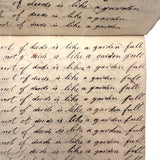 of deeds is like a garden
of deeds is like a garden
not of deeds is like a garden full
not of deeds is like a garden full
not of deeds is like a garden full
not of deeds is like a garden full
not of deeds is like a garden full
not of deeds is like a garden full
not of deeds is like a garden full
not of deeds is like a garden full
not of deeds is like a garden full